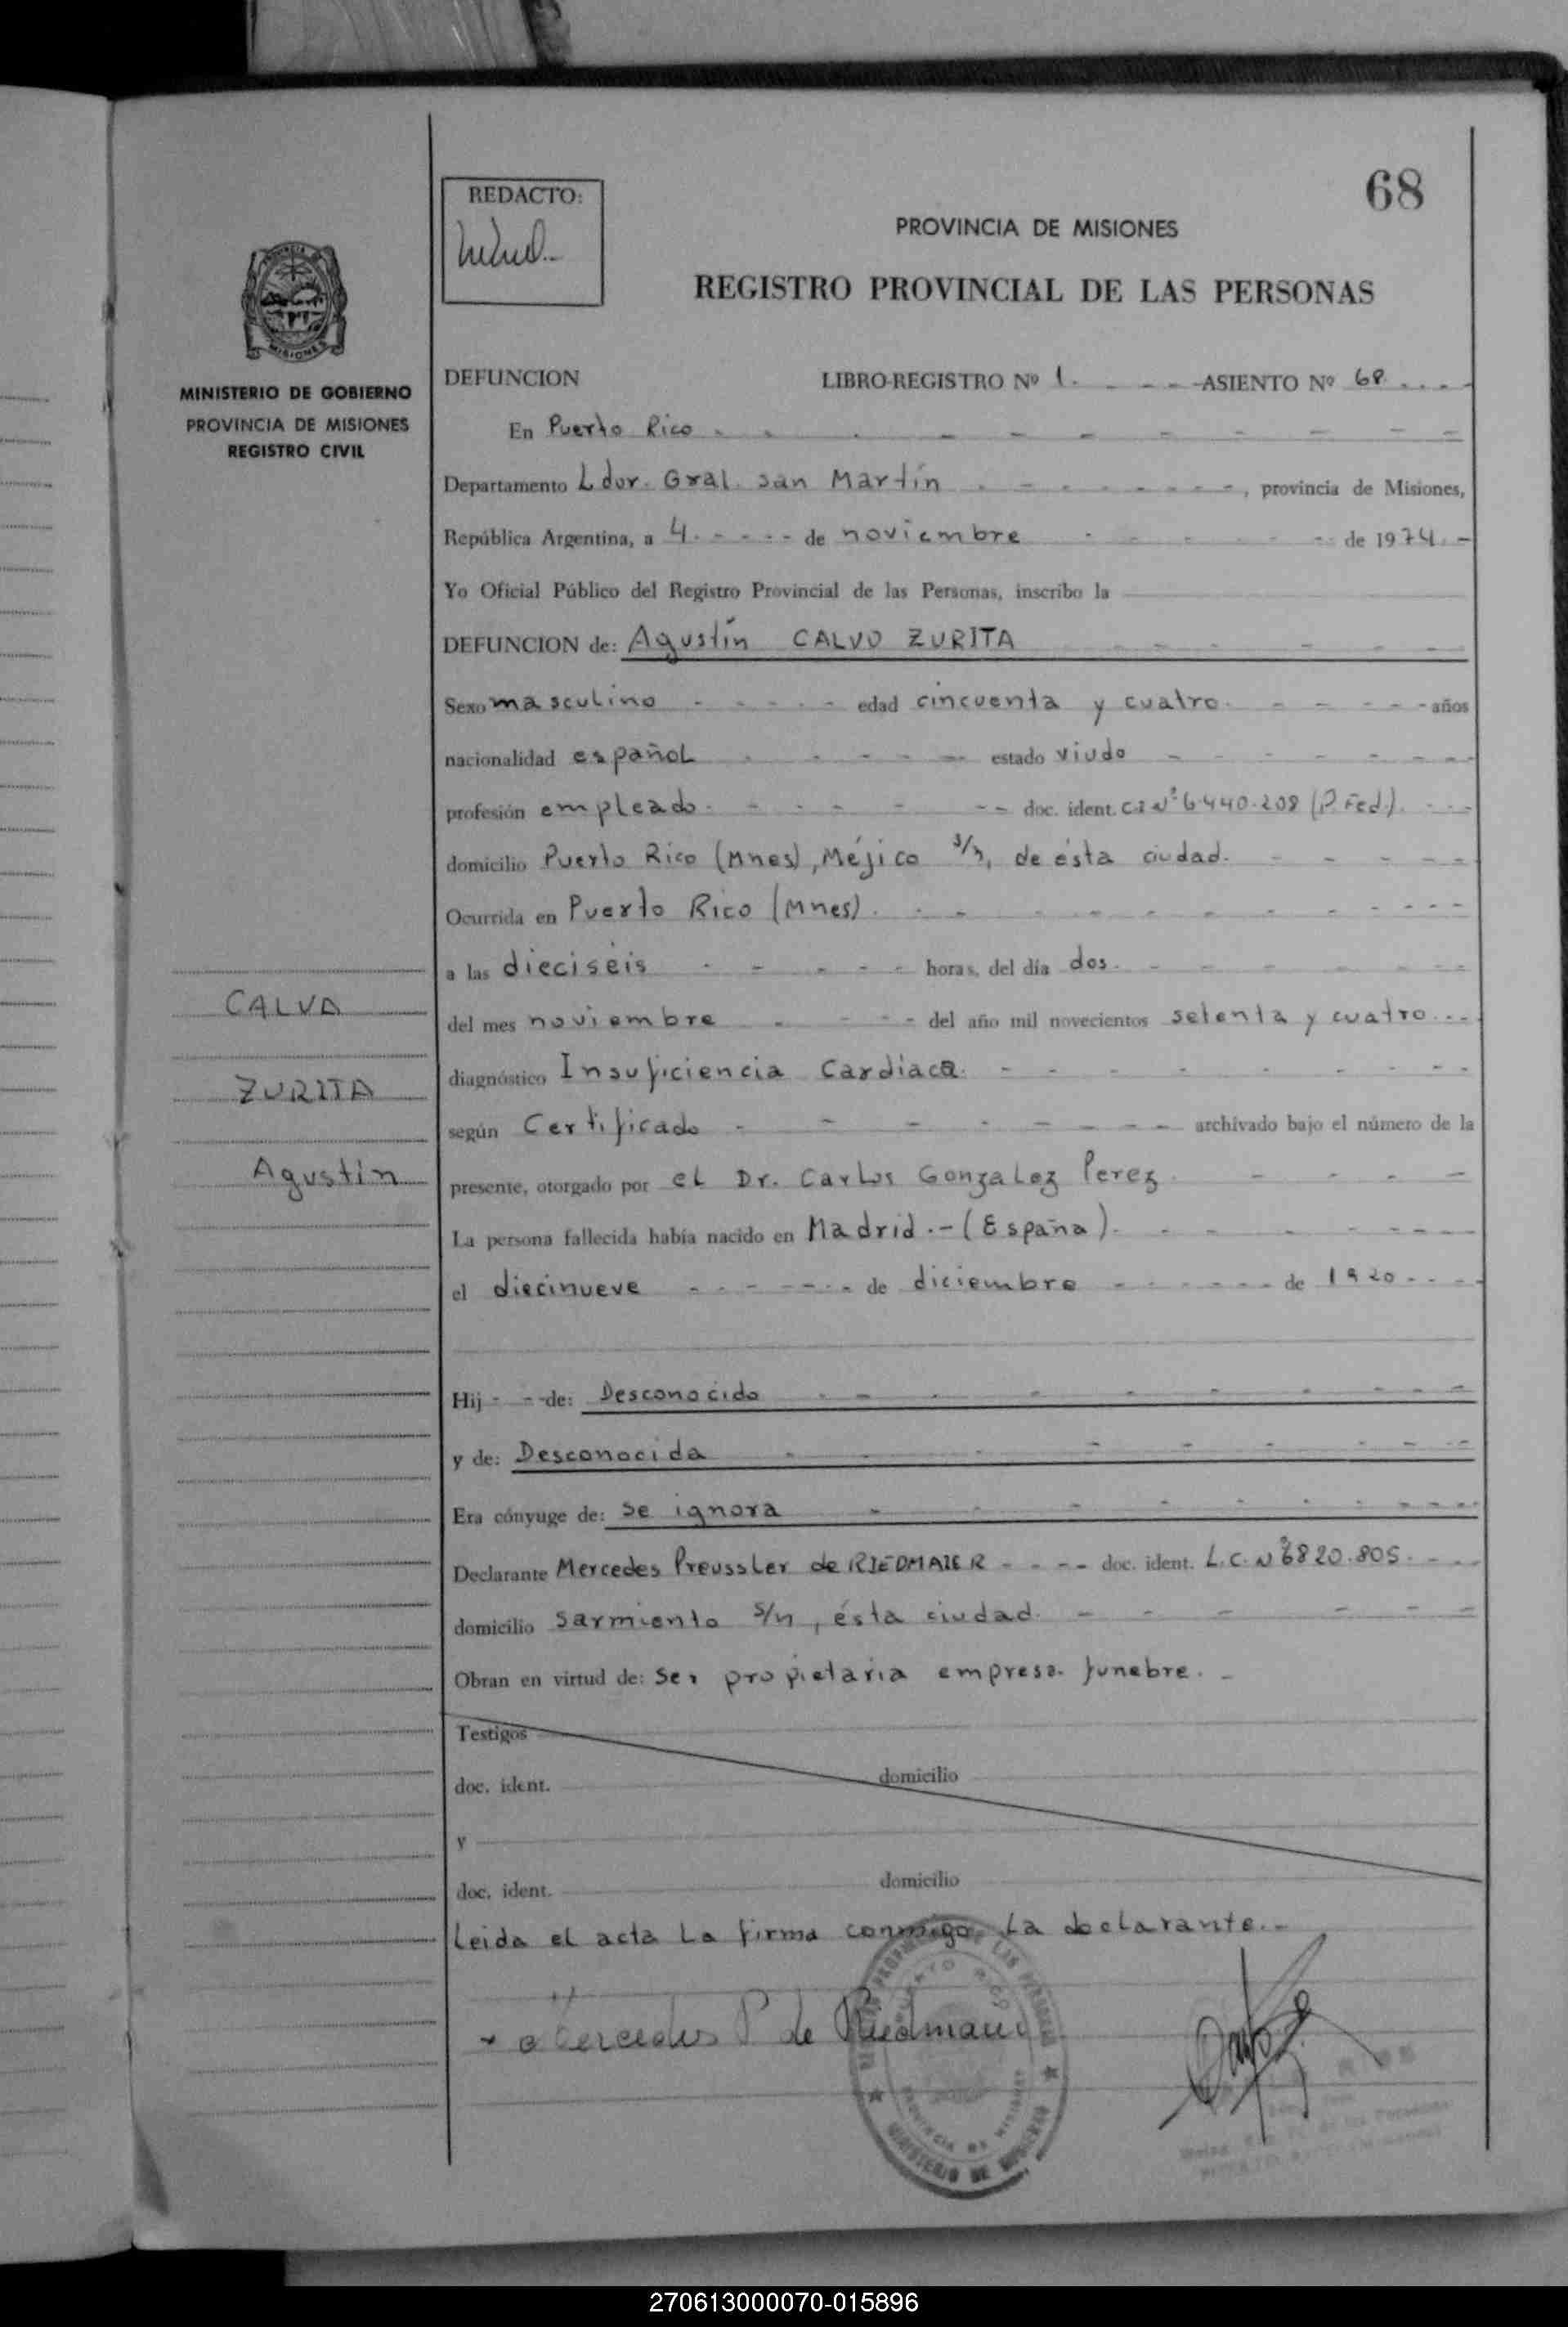 68
REDACTO:
PROVINCIA DE MISIONES
REGISTRO PROVINCIAL DE LAS PERSONAS
PROVINCIA
MISIONES
MINISTERIO DE GOBIERNO
PROVINCIA DE MISIONES
REGISTRO CIVIL
DEFUNCION LIBRO-REGISTRO Nº 1. - - - - ASIENTO Nº 68 . . . -
En Puerto Rico - - - - - - - - - -
Departamento Ldor. Gral. San Martín - - - - - - - -, provincia de Misiones,
República Argentina, a 4 - - - - - de noviembre - - - - - de 1974.-
Yo Oficial Público del Registro Provincial de las Personas, inscribo la
DEFUNCION de: Agustín CALVO ZURITA - - - - - -
Sexo masculino - - - - - edad cincuenta y cuatro - - - - - años
nacionalidad español - - - - - estado viudo - - - - - - -
profesión empleado - - - - - - doc. ident. C.I Nº 6.440.208 (P. Fed.) - - -
domicilio Puerto Rico (Mnes), Méjico s/n, de ésta ciudad. - - - - -
Ocurrida en Puerto Rico (Mnes). - - - - - - - - - - -
a las dieciséis - - - - - horas, del día dos. - - - - - - -
del mes noviembre - - - - del año mil novecientos setenta y cuatro...
diagnóstico Insuficiencia Cardiaca. - - - - - - - -
según Certificado - - - - - - - - archivado bajo el número de la
presente, otorgado por el Dr. Carlos Gonzalez Perez - - - -
La persona fallecida había nacido en Madrid.-(España). - - - - - - -
el diecinueve - - - - - - de diciembre - - - - - - de 1920 - - - -
CALVO
ZURITA
Agustín
Hij - - -de: Desconocido - - - - - - - - - -
y de: Desconocida - - - - - - - - -
Era cónyuge de: se ignora - - - - - - - - - -
Declarante Mercedes Preussler de RIEDMAIER - - - - doc. ident. L.C. Nº 6820.805. - - -
domicilio Sarmiento s/n, ésta ciudad. - - - - - -
Obran en virtud de: ser propietaria empresa funebre. -
Testigos
doc. ident. domicilio
y
doc. ident. domicilio
Leida el acta La firma conmigo La declarante.-
Mercedes P de Riedmaier
PUERTO RICO
PROVINCIA DE MISIONES
MINISTERIO DE GOBIERNO
270613000070-015896